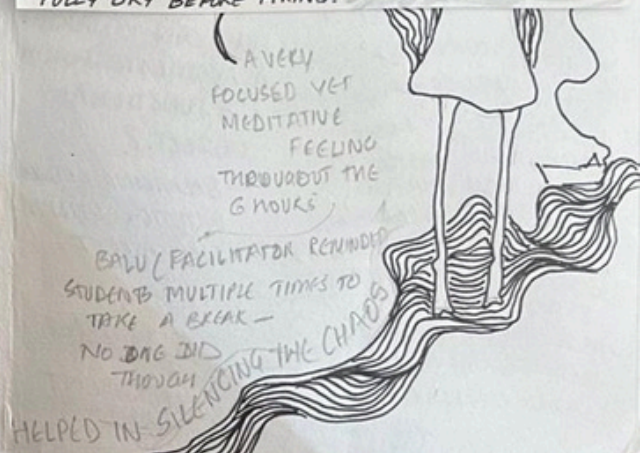 FULLY DRY BEFORE FIRING.
A VERY
FOCUSED YET
MEDITATIVE
FEELING
THROUGOUT THE
6 HOURS
BALU (FACILITATOR REMINDED
STUDENTS MULTIPLE TIMES TO
TAKE A BREAK –
NO ONE DID
THOUGH
HELPED IN SILENCING THE CHAOS